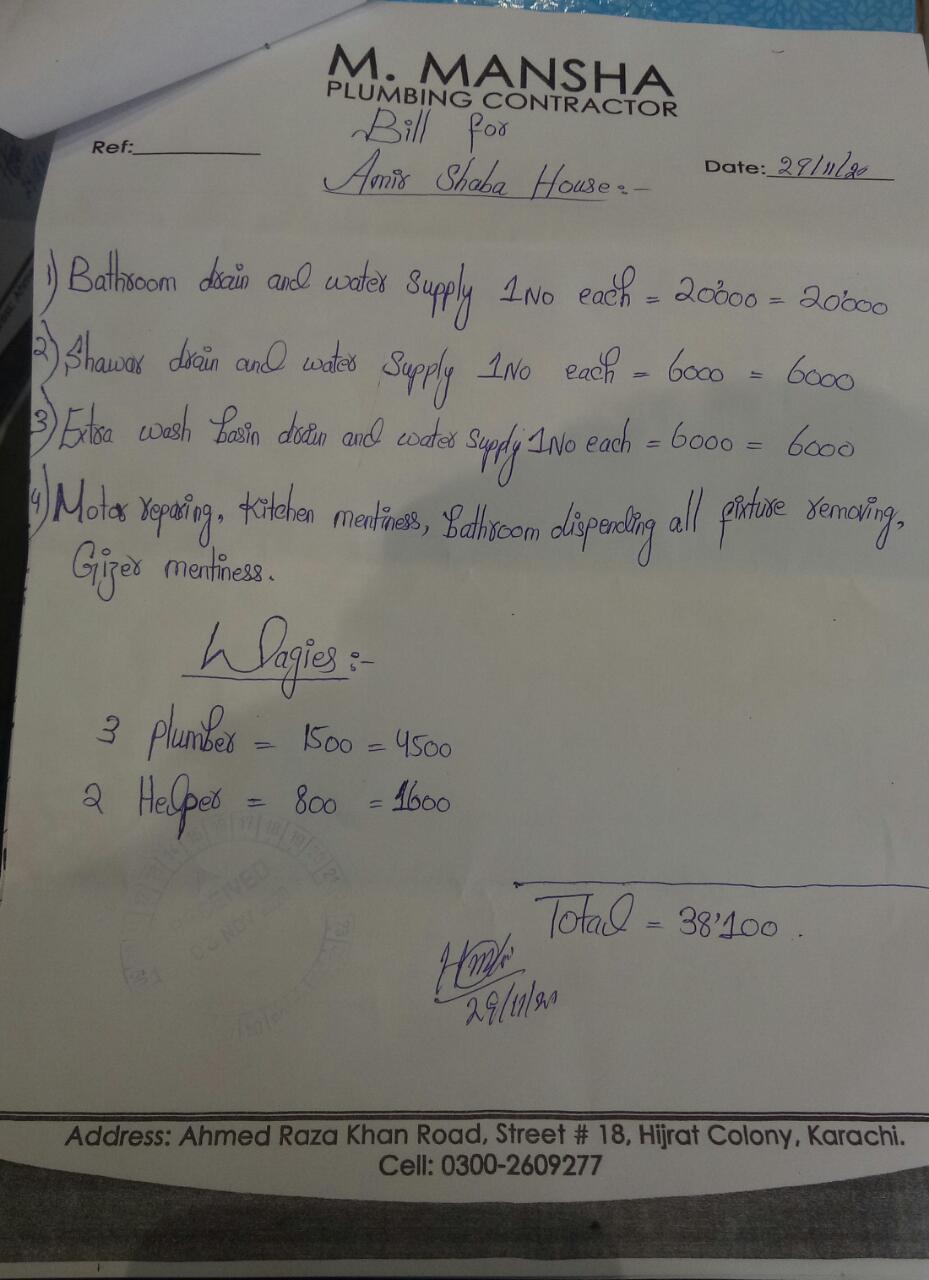 M. MANSHA
PLUMBING CONTRACTOR
Bill for
Ref:
Date: 29/11/20
Amir Shaba House:-
1) Bathroom drain and water Supply 1No each = 20'000 = 20'000
2) Shawar drain and water Supply 1No each = 6000 = 6000
3) Extra wash basin drain and water Supply 1No each = 6000 = 6000
4) Motor reparing, Kitchen mentiness, bathroom dispending all fixture removing,
Gizer mentiness.
Wagies:-
3 Plumber = 1500 = 4500
2 Helper = 800 = 1600
Total = 38'100.
29/11/20
Address: Ahmed Raza Khan Road, Street # 18, Hijrat Colony, Karachi.
Cell: 0300-2609277